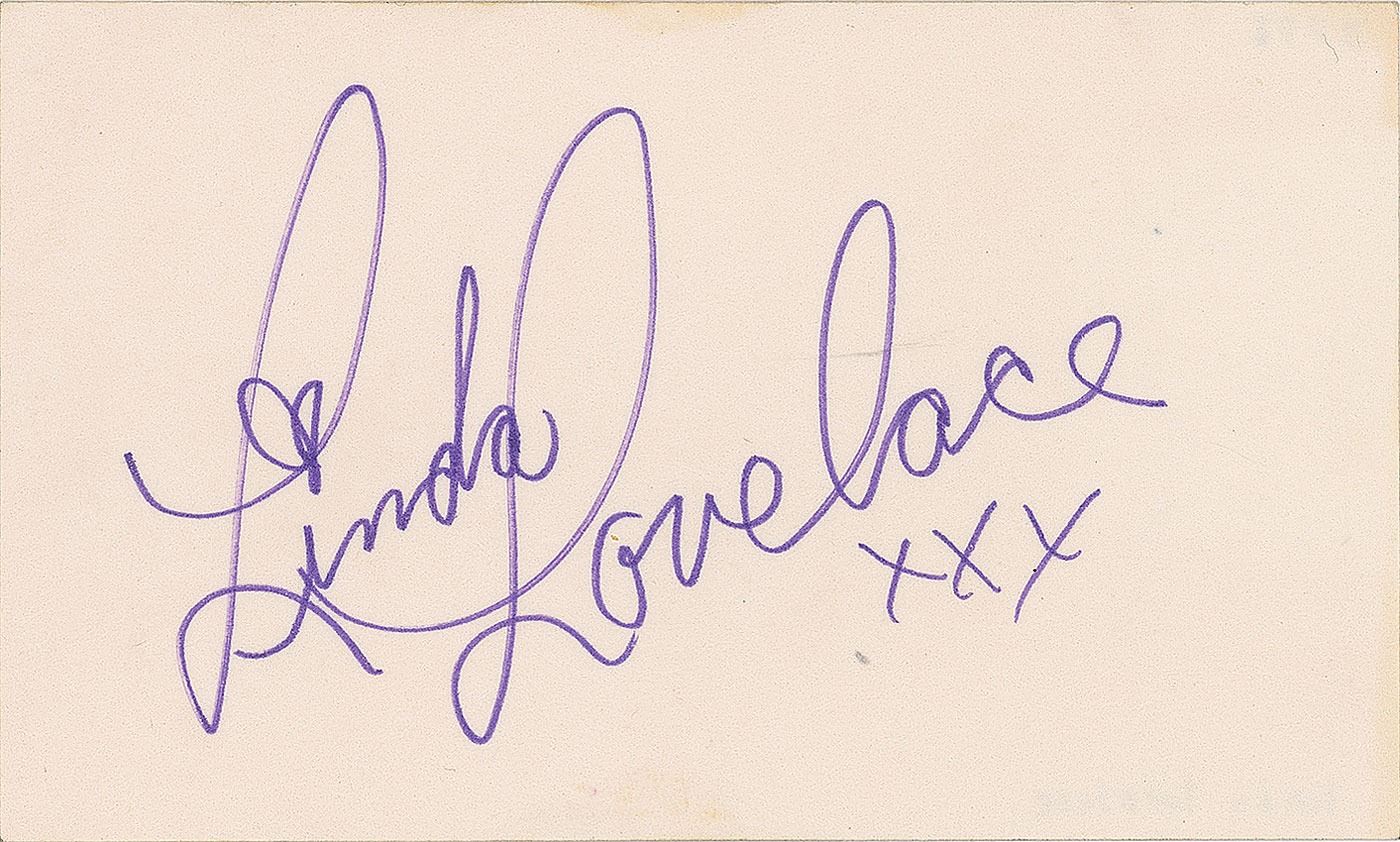 Linda Lovelace
xxx